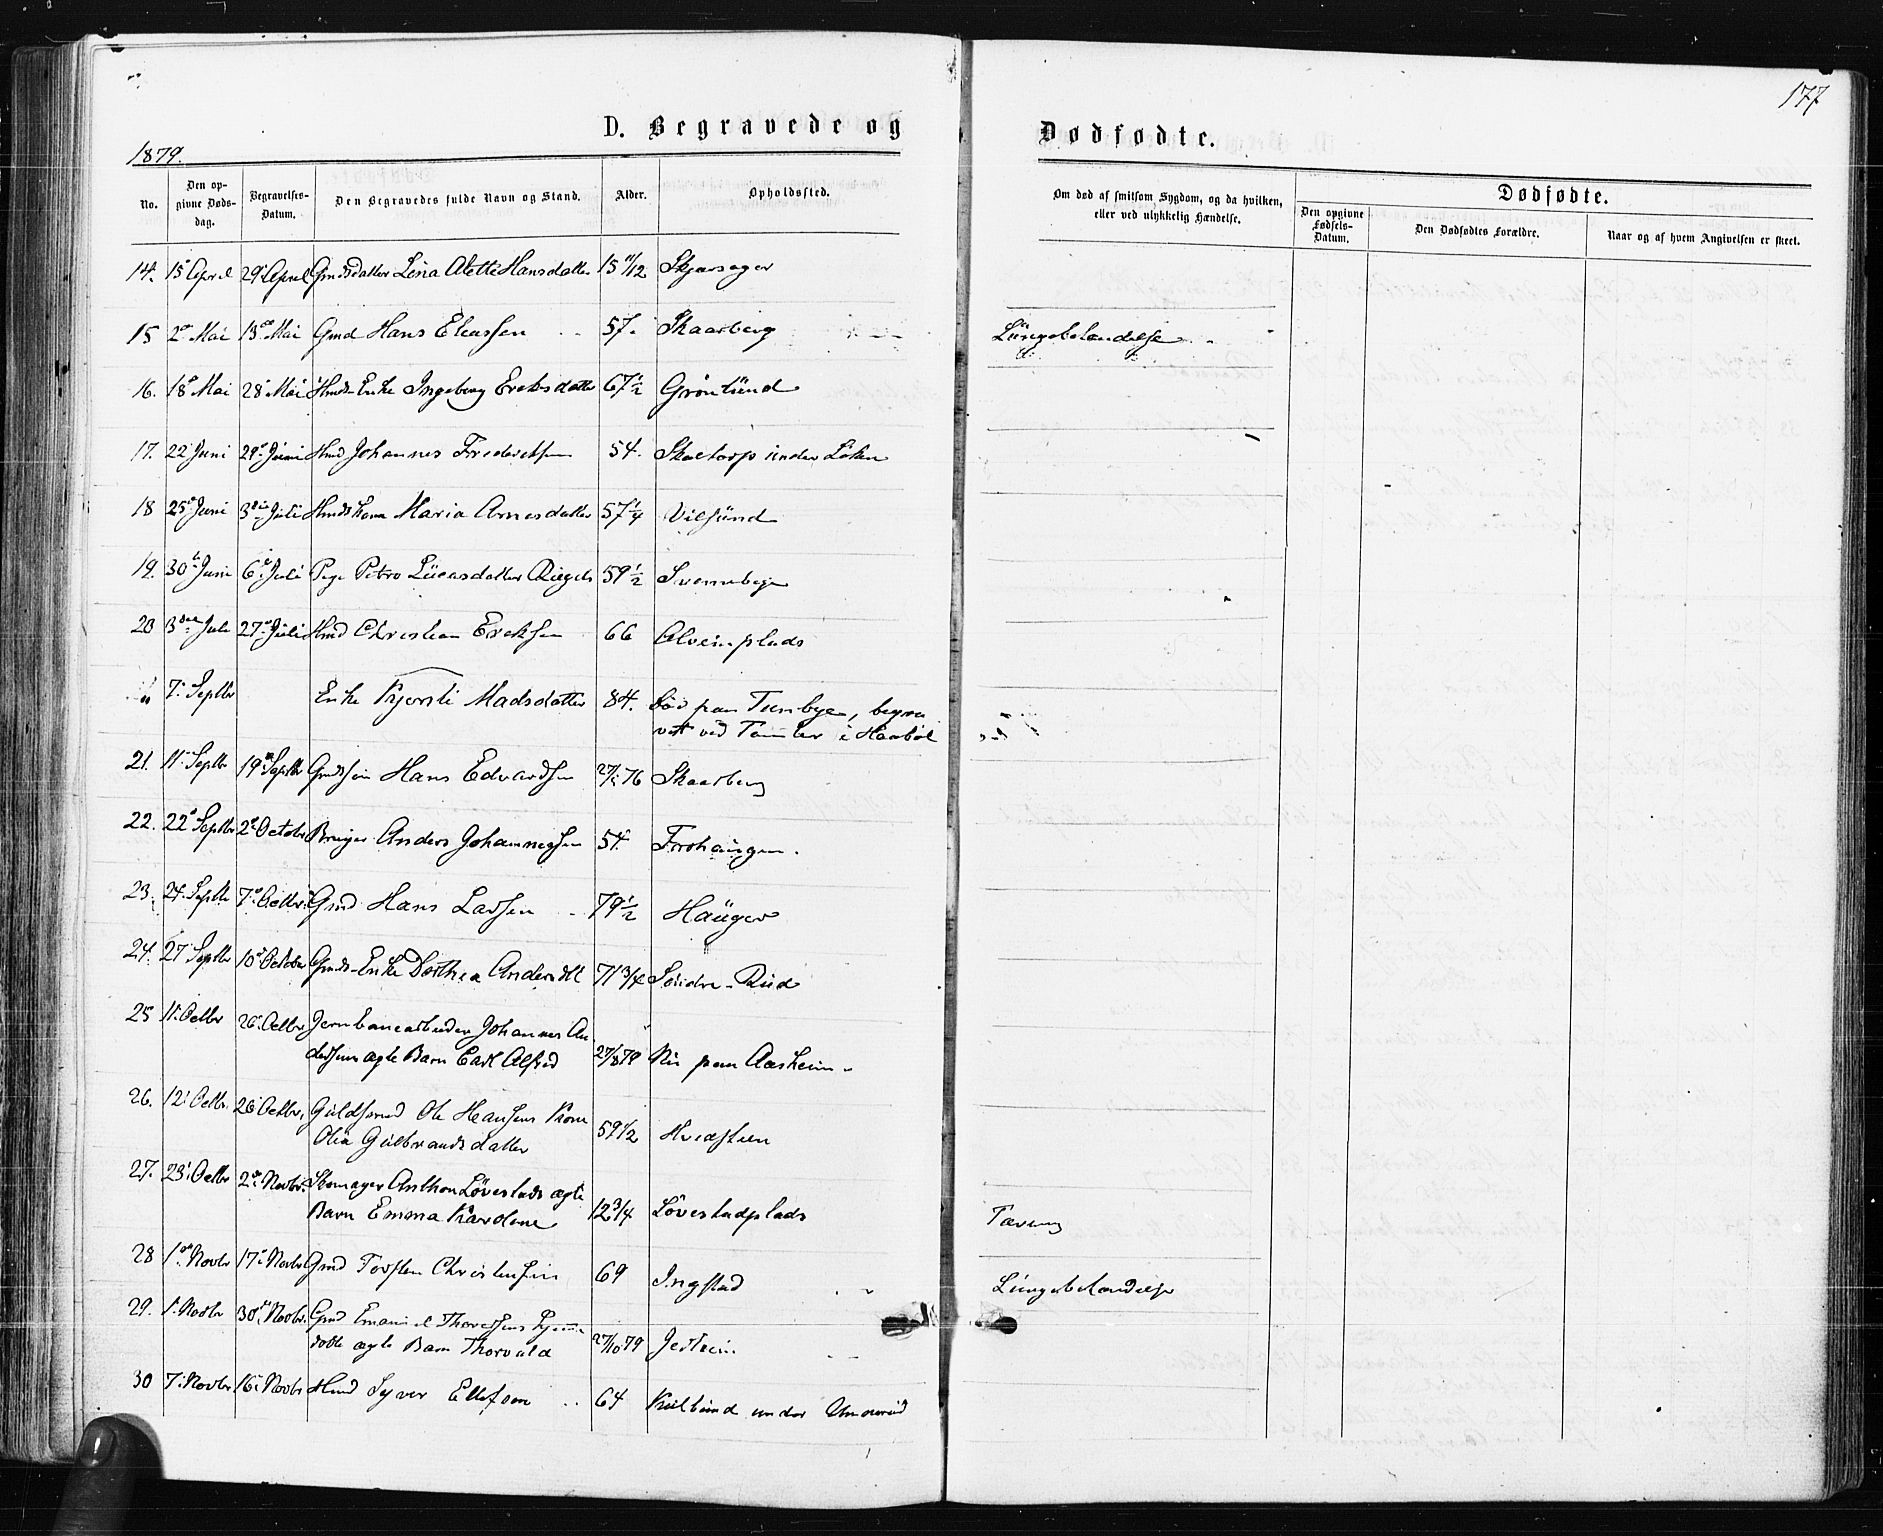 177
D. Begravede og
Dødfødte.
1879.
No.
Den opgivne Dødsdag.
Begravelses-Datum.
Den Begravedes fulde Navn og Stand.
Alder.
Opholdssted.
Om død af smitsom Sygdom, og da hvilken, eller ved ulykkelig Hændelse.
Dødfødte.
Den opgivne Fødsels-Datum.
Den Dødfødtes Forældre.
Naar og af hvem Angivelsen er skeet.
14. 15 April 29 April Gmdsdatter Lina Alette Hansdatter 15 11/12 Skjærsager
15 2 Mai 13 Mai Gmd Hans Eliassen 57. Skaarberg Lungebetændelse
16. 18 Mai 28 Mai Hmds-Enke Ingeborg Ericksdatter 67½ Grønlund
17. 22 Juni 29 Juni Hmd Johannes Frederiksen 54. Skoetorp under Löken
18 25 Juni 3die Juli Hmdskone Maria Arnesdatter 57¼ Vilsund
19. 30 Juni 6 Juli Pige Petra Lucasdatter Riegels 59½ Svenneby
20 3die Juli 27 Juli Hmd Christian Ericksen 66 Alveimplads
7 Septbr Enke Kjersti Madsdatter 84. Död paa Tunbye, begra
vet ved Tomter i Haabøl
21. 11 Septbr 19 Septbr Gmdssøn Hans Edvardsen 76 Skaarberg
22. 22 Septbr 2 Octobr Bruger Anders Johannessen 54. Frohaugen.
23. 24 Septbr 7 Octbr Gmd Hans Larsen 79½ Hauger
24. 27 Septbr 10 October Gmds-Enke Dorthea Andersdtt 71 3/4 Søndre-Rud
25 11 Octbr 26 Octbr Jernbanearbeider Johannes An
dersens ægte Barn Carl Alfred 27/8 79 Nu paa Aasheim
26. 12 Octbr. 26 Octbr. Guldsmed Ole Hansens Kone
Olia Gulbrandsdatter 59½ Hvidsteen
27. 23 Octbr 2 Novbr. Skomager Anthon Løvestads ægte
Barn Emma Karoline 12 3/4 Løvestadplads Tæring
28 1 Novbr 17 Novbr Gmd Torsten Christensen 69 Ingstad Lungebetændelse
29. 1 Novbr 30 Novbr. Gmd Emanuel Thoresens
ægte Barn Thorvald 27/10 79
30 7 Novbr 16 Novbr Hmd Syver Ellefsen 64 under